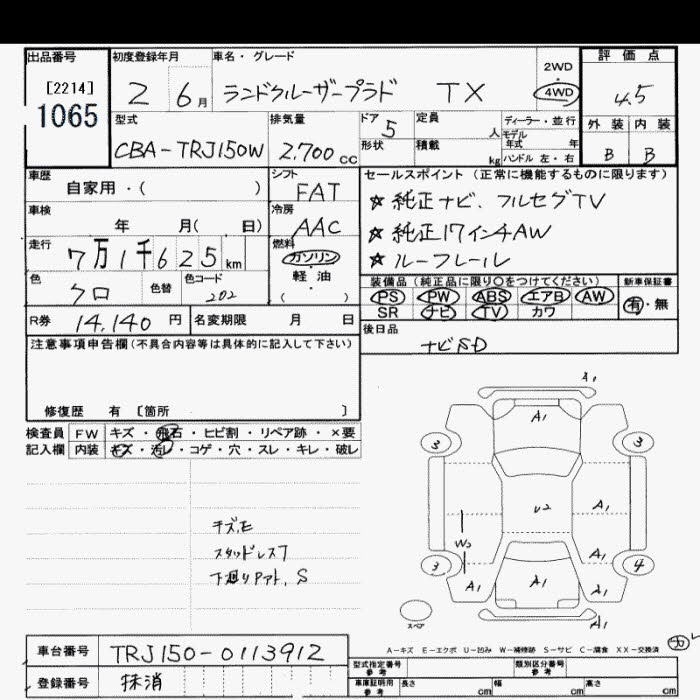 出品番号 初度登録年月 車名・グレード 評価点
[2214]
1065
2 6月 ランドクルーザープラド TX 2WD・4WD 4.5
型式 排気量 ドア 定員 ディーラー・並行 外装 内装
CBA-TRJ150W 2,700cc 5 人 モデル年式 年 B B
形状 積載 kg ハンドル 左・右
車歴 シフト セールスポイント (正常に機能するものに限ります)
自家用・( ) FAT ☆ 純正ナビ、フルセグTV
車検 冷房 ☆ 純正17インチAW
年 月( 日) AAC ☆ ルーフレール
走行 燃料
7万1千625km ガソリン・軽油・( )
色 色替 色コード
クロ 202
装備品 (純正品に限り○をつけてください) 新車保証書
PS PW ABS エアB AW 有・無
SR ナビ TV カワ
R券 14,140円 名変期限 月 日
後日品
ナビSD
注意事項申告欄 (不具合内容等は具体的に記入して下さい)
修復歴 有 [箇所 ]
検査員 FW キズ・飛石・ヒビ割・リペア跡・×要
記入欄 内装 キズ・汚レ・コゲ・穴・スレ・キレ・破レ
スタッドレス7
A1
A1
3 3
U2 A1
W2
A1
3 4
A1 A1 A1
スペア A1
A-キズ E-エクボ U-凹み W-補修跡 S-サビ C-腐食 XX-交換済
車台番号 TRJ150-0113912
登録番号 抹消
型式指定番号 参考 類別区分番号 参考
車庫証明用 参考 長さ cm 幅 cm 高さ cm